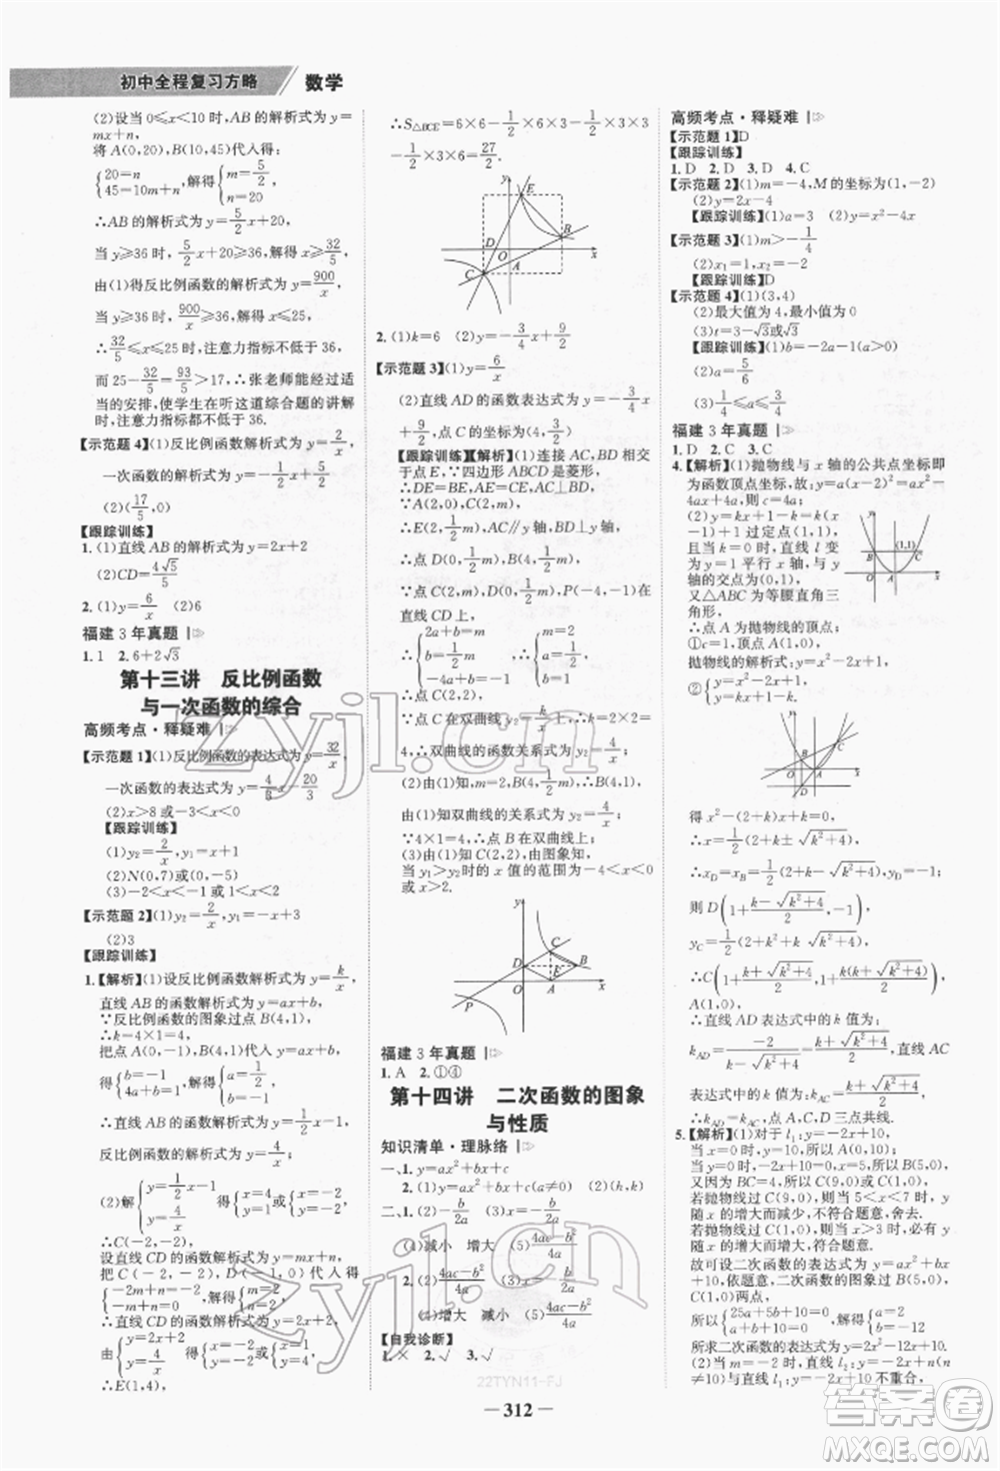 初中全程复习方略 数学
(2)设当 0≤x<10 时,AB 的解析式为 y=
mx+n,
将 A(0,20),B(10,45)代入得:
{20=n 45=10m+n,解得{m=5/2 n=20
∴AB 的解析式为 y=5/2x+20,
当 y≥36 时,5/2x+20≥36,解得 x≥32/5,
由(1)得反比例函数的解析式为 y=900/x,
当 y≥36 时,900/x≥36,解得 x≤25,
∴32/5≤x≤25 时,注意力指标都不低于 36,
而 25-32/5=93/5>17,∴张老师能经过适
当的安排,使学生在听这道综合题的讲解
时,注意力指标都不低于 36.
【示范题 4】(1)反比例函数解析式为 y=2/x,
一次函数解析式为 y=-1/2x+5/2
(2)(17/5,0)
【跟踪训练】
1.(1)直线 AB 的解析式为 y=2x+2
(2)CD=4√5/5
2.(1)y=6/x (2)6
福建 3 年真题
1.1 2.6+2√3
第十三讲 反比例函数
与一次函数的综合
高频考点·释疑难
【示范题 1】(1)反比例函数的表达式为 y=32/x
(2)x>8 或-3<x<0
【跟踪训练】
(1)y₂=2/x,y₁=x+1
(2)N(0,7)或(0,-5)
(3)-2<x<0 或 x>1
【示范题 2】(1)y₂=2/x,y₁=-x+3
(2)3
【跟踪训练】
1.【解析】(1)设反比例函数解析式为 y=k/x,
直线 AB 的函数解析式为 y=ax+b,
∵反比例函数的图象过点 B(4,1),
∴k=4×1=4,
把点 A(0,-1),B(4,1)代入 y=ax+b 得
{b=-1 4a+b=1,解得{a=1/2 b=-1,
∴直线 AB 的解析式为 y=1/2x-1,
反比例函数的解析式为 y=4/x;
(2)解{y=1/2x-1 y=4/x 得{x=-2 y=-2或{x=4 y=1,
∴C(-2,-2),
设直线 CD 的函数解析式为 y=mx+n,
把 C(-2,-2),D(-1,0)代入得
{-2m+n=-2 -m+n=0,解得{m=2 n=2,
∴直线 CD 的函数解析式为 y=2x+2,
由{y=2x+2 y=4/x 得{x=1 y=4或{x=-2 y=-2,
∴E(1,4),
∴S△BCE=6×6-1/2×6×3-1/2×3×3
-1/2×3×6=27/2.
y E D B O A x C
2.(1)k=6 (2)y=-3/4x+9/2
【示范题 3】(1)y=6/x
(2)直线 AD 的函数表达式为 y=-3/4x+
【跟踪训练】【解析】(1)连接 AC,交 BD
于点 E,∵四边形 ABCD 是菱形,
∴DE=BE,AE=CE,
∵A(2,0),
∴E(2,1/2m),AC∥y 轴,
∴点 D(0,1/2m),B(4,1/2m),
∴点 C(2,m),
∵点 A(2,0),D(0,1/2m)在
直线 CD 上,
∴点 C(2,2),
∵点 C 在双曲线 y₂=k/x 上,∴k=2×2=
4,∴双曲线的函数关系式为 y₂=4/x;
(2)由(1)知,m=2,∴B(4,1/2m)=(4,1),
由(1)知双曲线的关系式为 y₂=4/x,
∵4×1=4,∴点 B 在双曲线上;
(3)由(1)知 C(2,2),由图象知,
当 y₁>y₂ 时的 x 值的范围为-4<x<0
或 x>2.
y C D B O A x P
福建 3 年真题
1.A 2.①④
第十四讲 二次函数的图象
与性质
知识清单·理脉络
一、1.y=ax²+bx+c
2.(1)y=ax²+bx+c(a≠0) (2)(h,k)
二、1.(2)-b/2a (3)x=-b/2a
(4)减小 增大 (5)4ac-b²/4a
(4)增大 减小 (5)4ac-b²/4a
【自我诊断】
1.× 2.√ 3.√
高频考点·释疑难
【示范题 1】D
【跟踪训练】
1.D 2.D 3.D 4.C
【示范题 2】(1)m=-4,M 的坐标为(1,-2)
(2)y=2x-4
【跟踪训练】(1)a=3 (2)y=x²-4x
【示范题 3】(1)m>-1/4
(2)x₁=-1,x₂=0
【跟踪训练】D
【示范题 4】(1)(3,4)
(2)最大值为 4,最小值为 0
(3)t=3-√3或√3
【跟踪训练】(1)b=-2a(a>0)
(2)a=5/6
福建 3 年真题
1.D 2.C 3.C
4.【解析】(1)抛物线与 x 轴的公共点坐标即
为函数顶点坐标,故 y=a(x-2)²=ax²-
4ax+4a,则 c=4a;
(2)y=kx+1-k=k(x
-1)+1 过定点(1,1),
且当 k=0 时,直线 l 变
为 y=1 平行 x 轴,与 y
轴的交点为(0,1),
又△ABC 为等腰直角三
角形,
∴点 A 为抛物线的顶点;
①c=1,顶点 A(1,0),
抛物线的解析式:y=x²-2x+1;
得 x²-(2+k)x+k=0,
∴x=1/2(2+k±√k²+4),
∴x_D=x_B=1/2(2+k-√k²+4),
A(1,0),
∴直线 AD 表达式中的 k 值为:
直线 AC
∴k_AD=k_AC,点 A,C,D 三点共线.
5.【解析】(1)对于 l₁:y=-2x+10,
当 x=0 时,y=10,所以 A(0,10),
当 x=5 时,y=0,所以 B(5,0),
因为 BC=4,所以 C(9,0)或 C(1,0),
若抛物线过 C(9,0),则当 5<x<7 时,y 随
x 的增大而减少,不符合题意,舍去.
若抛物线过 C(1,0),则当 x>3 时,必有 y
随 x 的增大而增大,符合题意.
故可设二次函数的表达式为 y=ax²+bx+
10,依题意,二次函数的图象过 B(5,0),
C(1,0)两点,
所以{25a+5b+10=0 a+b+10=0,解得{a=2 b=-12
所求二次函数的表达式为 y=2x²-12x+10.
(2)当 m=-2 时,直线 l₂:y=-2x+n(n≠
10),故直线 l₁,l₂ 不重合,
22TYN11-FJ
312
zyjl.cn
zyjl.cn
答案圈
MXQE.COM